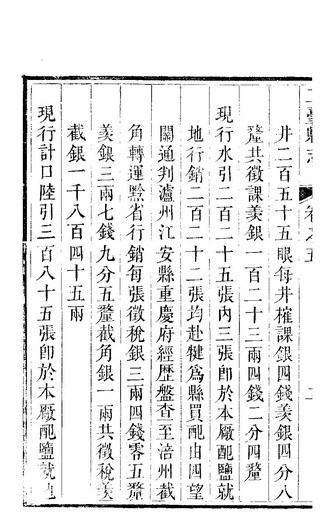 三臺縣志 卷之五
井二百五十五眼每井榷課銀四錢羨銀四分八
釐共徵課羨銀一百二十三兩四錢二分四釐
現行水引二百二十五張內三張卽於本厰配鹽就
地行銷二百二十二張均赴犍爲縣買配由四望
關通判瀘州江安縣重慶府經歷盤查至涪州截
角轉運黔省行銷每張徵稅銀三兩四錢零五釐
羨銀三兩七錢九分五釐截角銀一兩共徵稅羨
截銀一千八百四十五兩
現行計口陸引三百八十五張卽於本厰配鹽就地